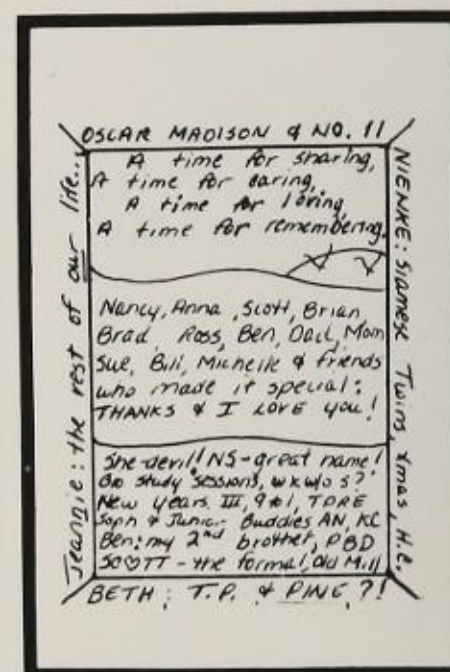 OSCAR MADISON & NO. 11
A time for sharing,
A time for caring,
A time for loving,
A time for remembering.
Nancy, Anna, Scott, Brian
Brad, Ross, Ben, Dad, Mom
Sue, Bill, Michelle & friends
who made it special:
THANKS & I LOVE you!
She-devil! NS-great name!
Bio study sessions, wkwlo s?
New Years III, 9+1, TDRE
Soph & Junior Buddies AN, KC
Ben: my 2nd brother, PBD
SCOTT - the formal, Old Mill
BETH: T.P. & PINE?!
Jeannie: the rest of our life...
NIENKE: Siamese Twins, Xmas, H.C.